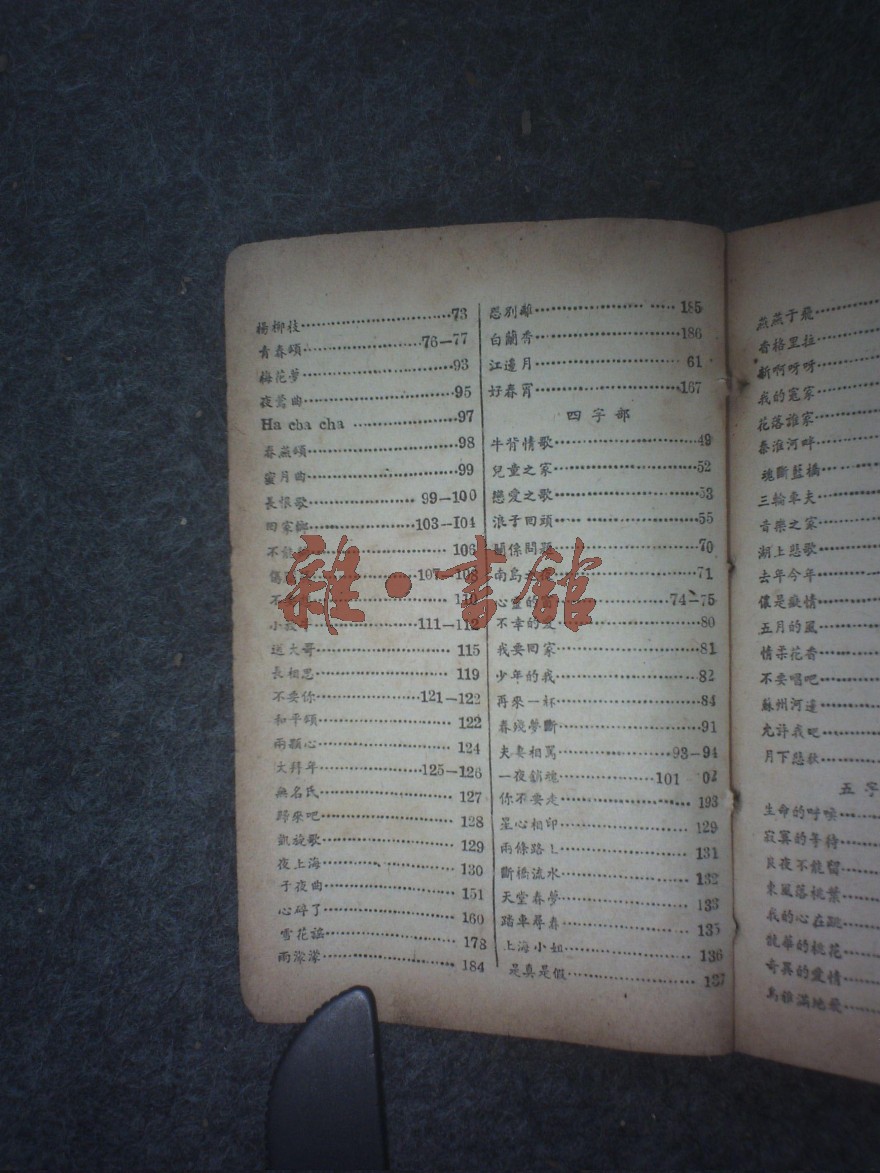 楊柳枝 73
青春頌 76—77
梅花夢 93
夜鶯曲 95
Ha cba cha 97
春燕頌 98
蜜月曲 99
長恨歌 99—100
回家鄉 103—I04
不能 106
107—108
不 110
小 111—112
送大哥 115
長相思 119
不要你 121—122
和平頌 122
兩顆心 124
大拜年 125—126
無名氏 127
歸來吧 128
凱旋歌 129
夜上海 130
子夜曲 151
心碎了 160
雪花謠 178
雨濛濛 184
恐別離 185
白蘭香 186
江邊月 61
好春宵 167
四字部
牛背情歌 49
兒童之家 52
戀愛之歌 53
浪子回頭 55
關係問題 70
南島 71
心靈的 74—75
不幸的 80
我要回家 81
少年的我 82
再來一杯 84
春殘夢斷 91
夫妻相罵 93—94
一夜銷魂 101 02
你不要走 193
星心相印 129
兩條路上 131
斷橋流水 132
天堂春夢 133
踏車尋春 135
上海小姐 136
是真是假 137
燕燕于飛
香格里拉
新啊呀呀
我的冤家
花落誰家
秦淮河畔
魂斷藍橋
三輪車夫
音樂之家
湖上悲歌
去年今年
像是癡情
五月的風
情柔花香
不要唱吧
蘇州河邊
允許我吧
月下悲秋
五字
生命的呼喚
寂寞的等待
良夜不能留
東風落桃葉
我的心在跳
龍華的桃花
奇異的愛情
烏鴉滿地飛
雜·書館